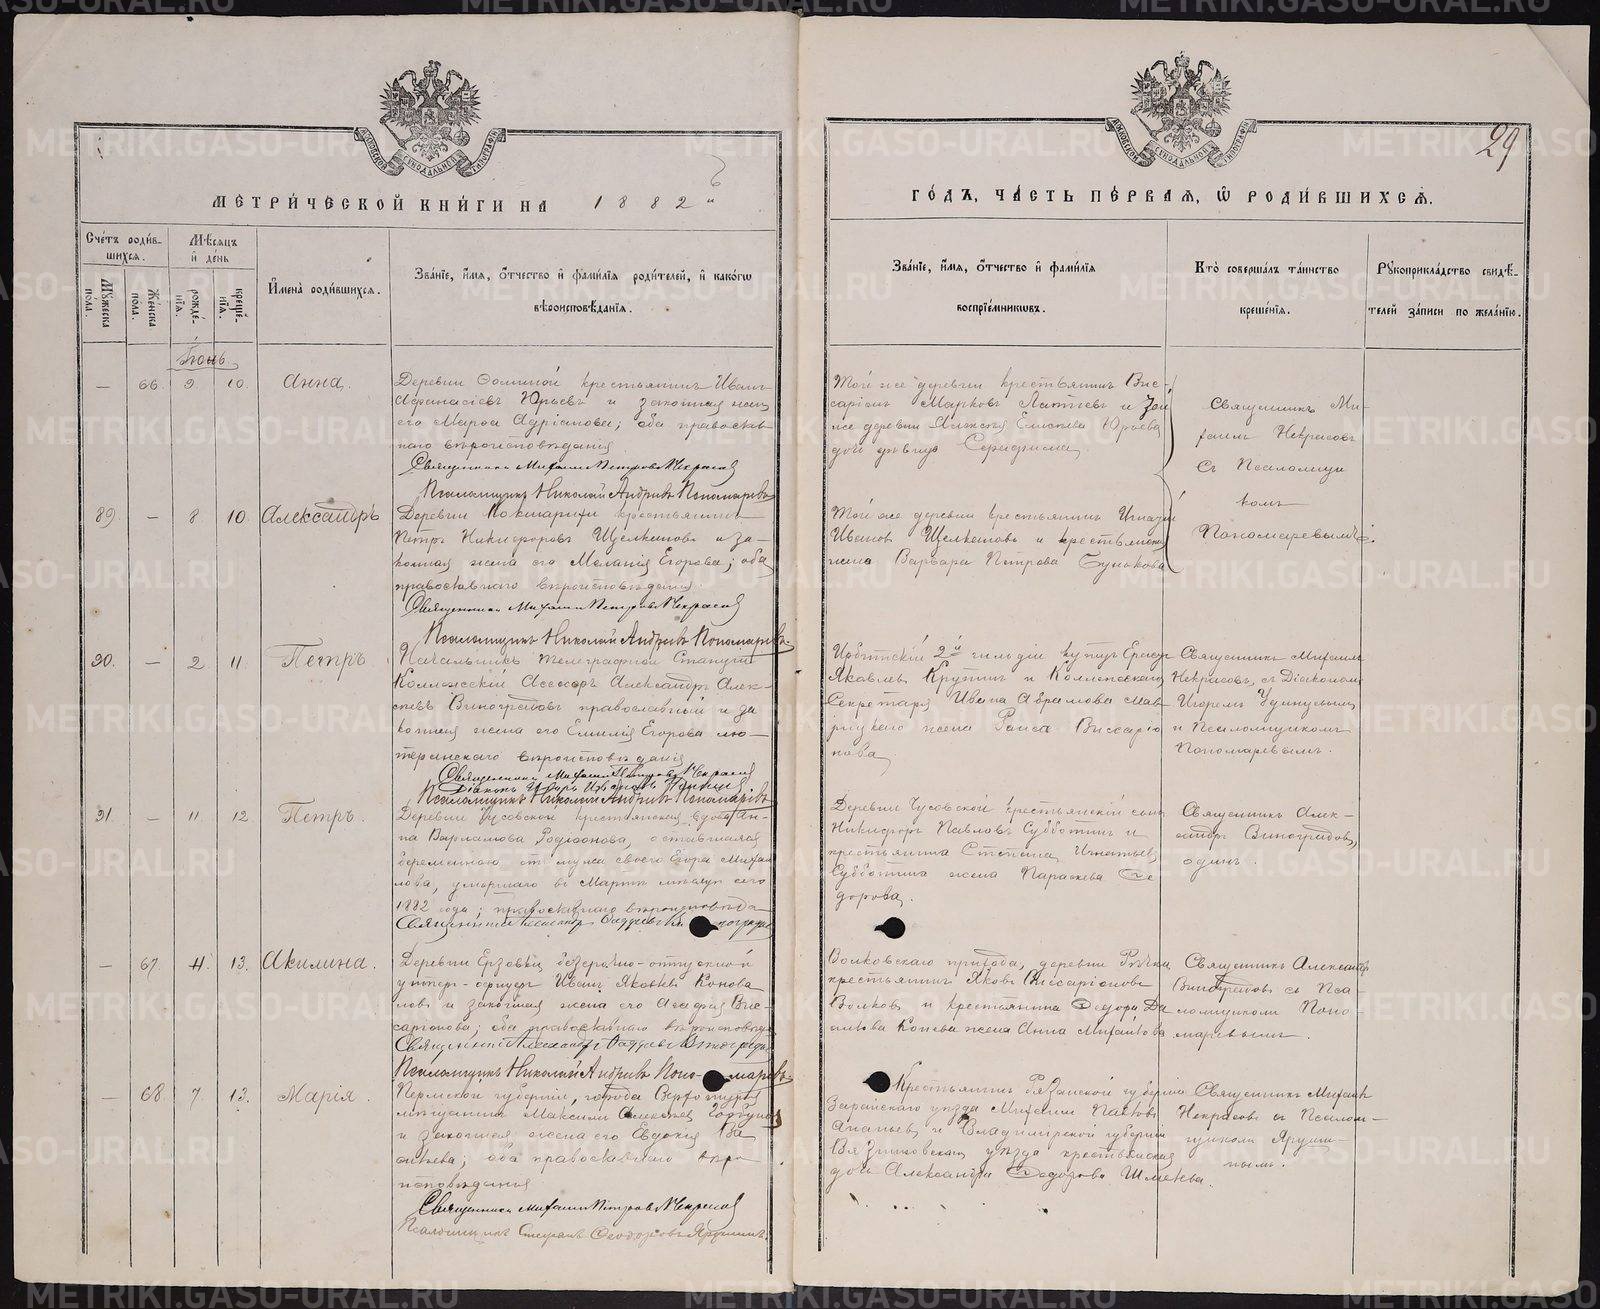 МЕТРИ́ЧЕСКОЙ КНИ́ГИ НА 1882
Сче́тъ роди́в-
шихсѧ.
Мѣ́сѧцъ
и҆ де́нь
Мꙋ́жеска
по́ла.
Же́нска
по́ла.
рожде́-
нїѧ.
креще́-
нїѧ.
И҆мена̀ роди́вшихсѧ.
Зва́нїе, и҆́мѧ, ѻ҆́тчество и҆ фами́лїѧ роди́телей, и҆ како́гѡ
вѣроисповѣ́данїѧ.
Іюнь.
— 66. 9. 10. Анна.
Деревни крестьянинъ Иванъ
Афанасіевъ Юрьевъ и законная жена
его Марѳа Адріанова; оба православ-
наго вѣроисповѣданія
Священникъ Михаилъ Петровъ Некрасовъ
Псаломщикъ Николай Андреевъ Пономаревъ
89. — 8. 10. Александръ
Деревни крестьянинъ
Петръ Никифоровъ Щелкановъ и за-
конная жена его Меланія Егорова; оба
православнаго вѣроисповѣданія
Священникъ Михаилъ Петровъ Некрасовъ
Псаломщикъ Николай Андреевъ Пономаревъ
90. — 2 11. Петръ.
Начальникъ телеграфной Станціи
Коллежскій Асессоръ Александръ Алек-
сѣевъ Виноградовъ православный и за
конная жена его Емилія Егорова лю-
теранскаго вѣроисповѣданія
Священникъ Михаилъ Петровъ Некрасовъ
Діаконъ Игорь
Псаломщикъ Николай Андреевъ Пономаревъ
91. — 11. 12. Петръ.
Деревни Чусовской крестьянская вдова Ан-
на Варламова Родіонова, оставшаяся
беременною отъ мужа своего Егора Михаи
лова, умершаго въ Мартѣ мѣсяцѣ сего
1882 года; православнаго вѣроисповѣда
Священникъ Александръ Виноградовъ
— 67. 11. 13. Акилина.
Деревни Ерзовки безсрочно-отпускной
унтеръ-офицеръ Иванъ Яковлевъ Конова
ловъ и законная жена его Агафія Вис-
саріонова; оба православнаго вѣроисповѣда
Священникъ Александръ Виноградовъ
Псаломщикъ Николай Андреевъ Пономаревъ
— 68. 7. 13. Марія.
Пермской губерніи, города Верхотурья
мѣщанинъ Максимъ Алексѣевъ Горбуновъ
и законная жена его Евдокія Ва
сильева; оба православнаго вѣро
исповѣданія
Священникъ Михаилъ Петровъ Некрасовъ
Псаломщикъ Стефанъ Ѳеодоровъ Ярушинъ.
29
ГО́ДЪ, ЧА́СТЬ ПЕ́РВАѦ, Ѡ҆ РОДИ́ВШИХСѦ.
Зва́нїе, и҆́мѧ, ѻ҆́тчество и҆ фами́лїѧ
воспрїе́мникѡвъ.
Кто̀ соверша́лъ та́инство
креще́нїѧ.
Рꙋкоприкла́дство свидѣ́-
телей за́писи по жела́нїю.
Той же деревни крестьянинъ Вис-
саріонъ Марковъ Лаптевъ и той
же деревни Алексѣя Елисѣева Юрьева
дочь дѣвица
Священникъ Ми-
хаилъ Некрасовъ
съ Псаломщи
комъ
Пономаревымъ.
Той же деревни крестьянинъ Игнатій
Ивановъ Щелкановъ и крестьянская
жена Варвара Петрова Бунакова
Ирбитскій 2й гильдіи купецъ
Яковлевъ Крутинъ и Коллежскаго
Секретаря Ивана Абрамова Мав
рицкаго жена Раиса Виссаріо
нова
Священникъ Михаилъ
Некрасовъ, съ Діакономъ
Игоремъ
и Псаломщикомъ
Пономаревымъ.
Деревни Чусовской крестьянскій сынъ
Никифоръ Павловъ Субботинъ и
крестьянина Степана Игнатьева
Субботина жена Параскева Ѳе-
дорова.
Священникъ Алек-
сандръ Виноградовъ,
одинъ.
Волковскаго прихода, деревни Рѣчки
крестьянинъ Яковъ Виссаріоновъ
Волковъ и крестьянина Ѳедора Да
нилова Конева жена Анна Михайлова
Священникъ Александръ
Виноградовъ съ Пса-
ломщикомъ Поно-
маревымъ.
Крестьянинъ Рязанской губерніи
Зарайскаго уѣзда Михаилъ Павловъ
Ананьевъ и Владимірской губерніи
Вязниковскаго уѣзда крестьянская
дочь Александра Ѳедорова Шмелева.
Священникъ Михаилъ
Некрасовъ съ Псалом-
щикомъ Яруши-
нымъ.
METRIKI.GASO-URAL.RU